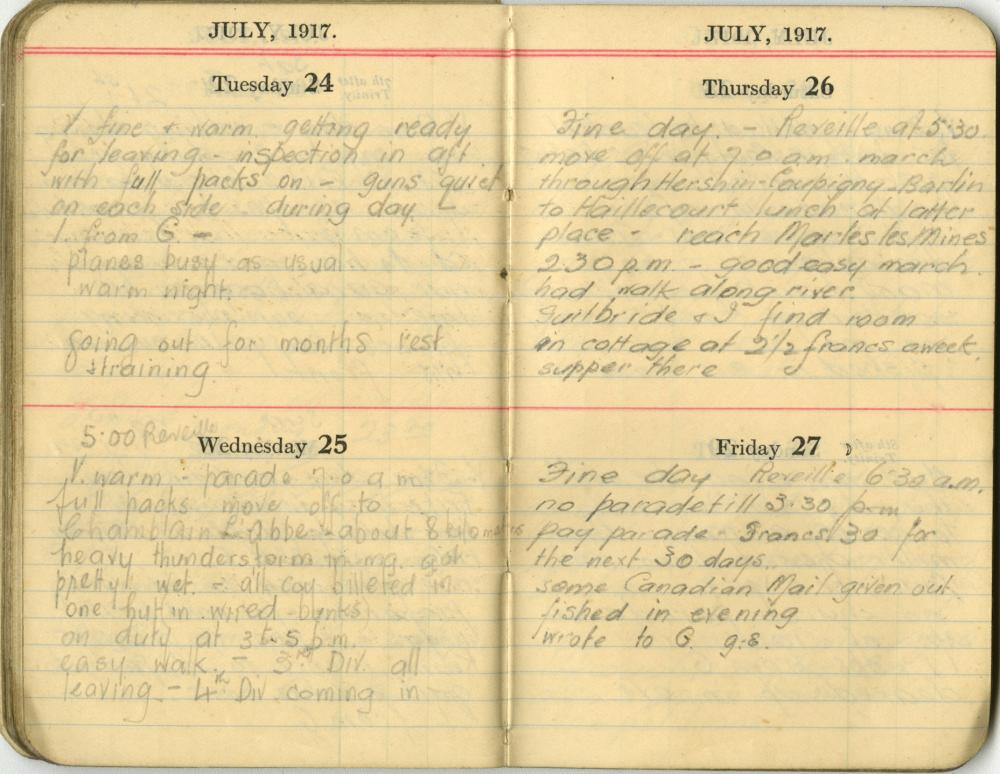 JULY, 1917.
Tuesday 24
V. fine + warm. getting ready
for leaving - inspection in aft
with full packs on - guns quiet
on each side during day.
1. from G. -
planes busy as usual
warm night.
going out for months rest
& training
5:00 Reveille
Wednesday 25
V. warm - parade 7.0 a m
full packs move off to
Chamblain L'abbe - about 8 kilometres
heavy thunderstorm in mg. got
pretty wet. - all coy billeted in
one hut (in wired-bunks)
on duty at 3 to 5 p.m.
easy walk. - 3rd Div. all
leaving - 4th Div coming in
JULY, 1917.
Thursday 26
Fine day. - Reveille at 5:30.
move off at 7.0 a.m. march
through Hershin-Coupigny-Barlin
to Haillecourt lunch at latter
place - reach Marles les Mines
2.30 p.m. - good easy march.
had walk along river.
Guilbride & I find room
in cottage at 2 1/2 francs a week.
supper there
Friday 27
Fine day Reveille 6:30 a.m.
no parade till 3.30 p.m
pay parade - Francs 30 for
the next 30 days.
some Canadian Mail given out.
fished in evening
wrote to G. g.8.